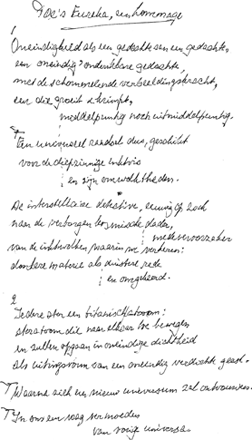 Poe's Eureka, een hommage
1
Oneindigheid als een gedachte aan een gedachte,
een oneindig ondenkbare gedachte,
met de schommelende verbeeldingskracht,
een die groeit & krimpt,
middelpuntig noch uitmiddelpuntig.
Een universeel raadsel dus, geschikt
voor de diepzinnige
en zijn omwolktheden.
De interstellaire detective, eenzaam op zoek
naar de verborgen kosmische dader,
medeveroorzaker
van de inktwolken waarin we verteren:
donkere materie als duistere rede
en omgekeerd.
2
Iedere ster een titanisch atoom:
steratomen die naar elkaar toe bewegen
en zullen opgaan in oneindige dichtheid
als uitingsvorm van een oneindig verdichte geest.
Waarna zich een nieuw universum zal ontvouwen.
In ons een vaag vermoeden
van vorige universa.